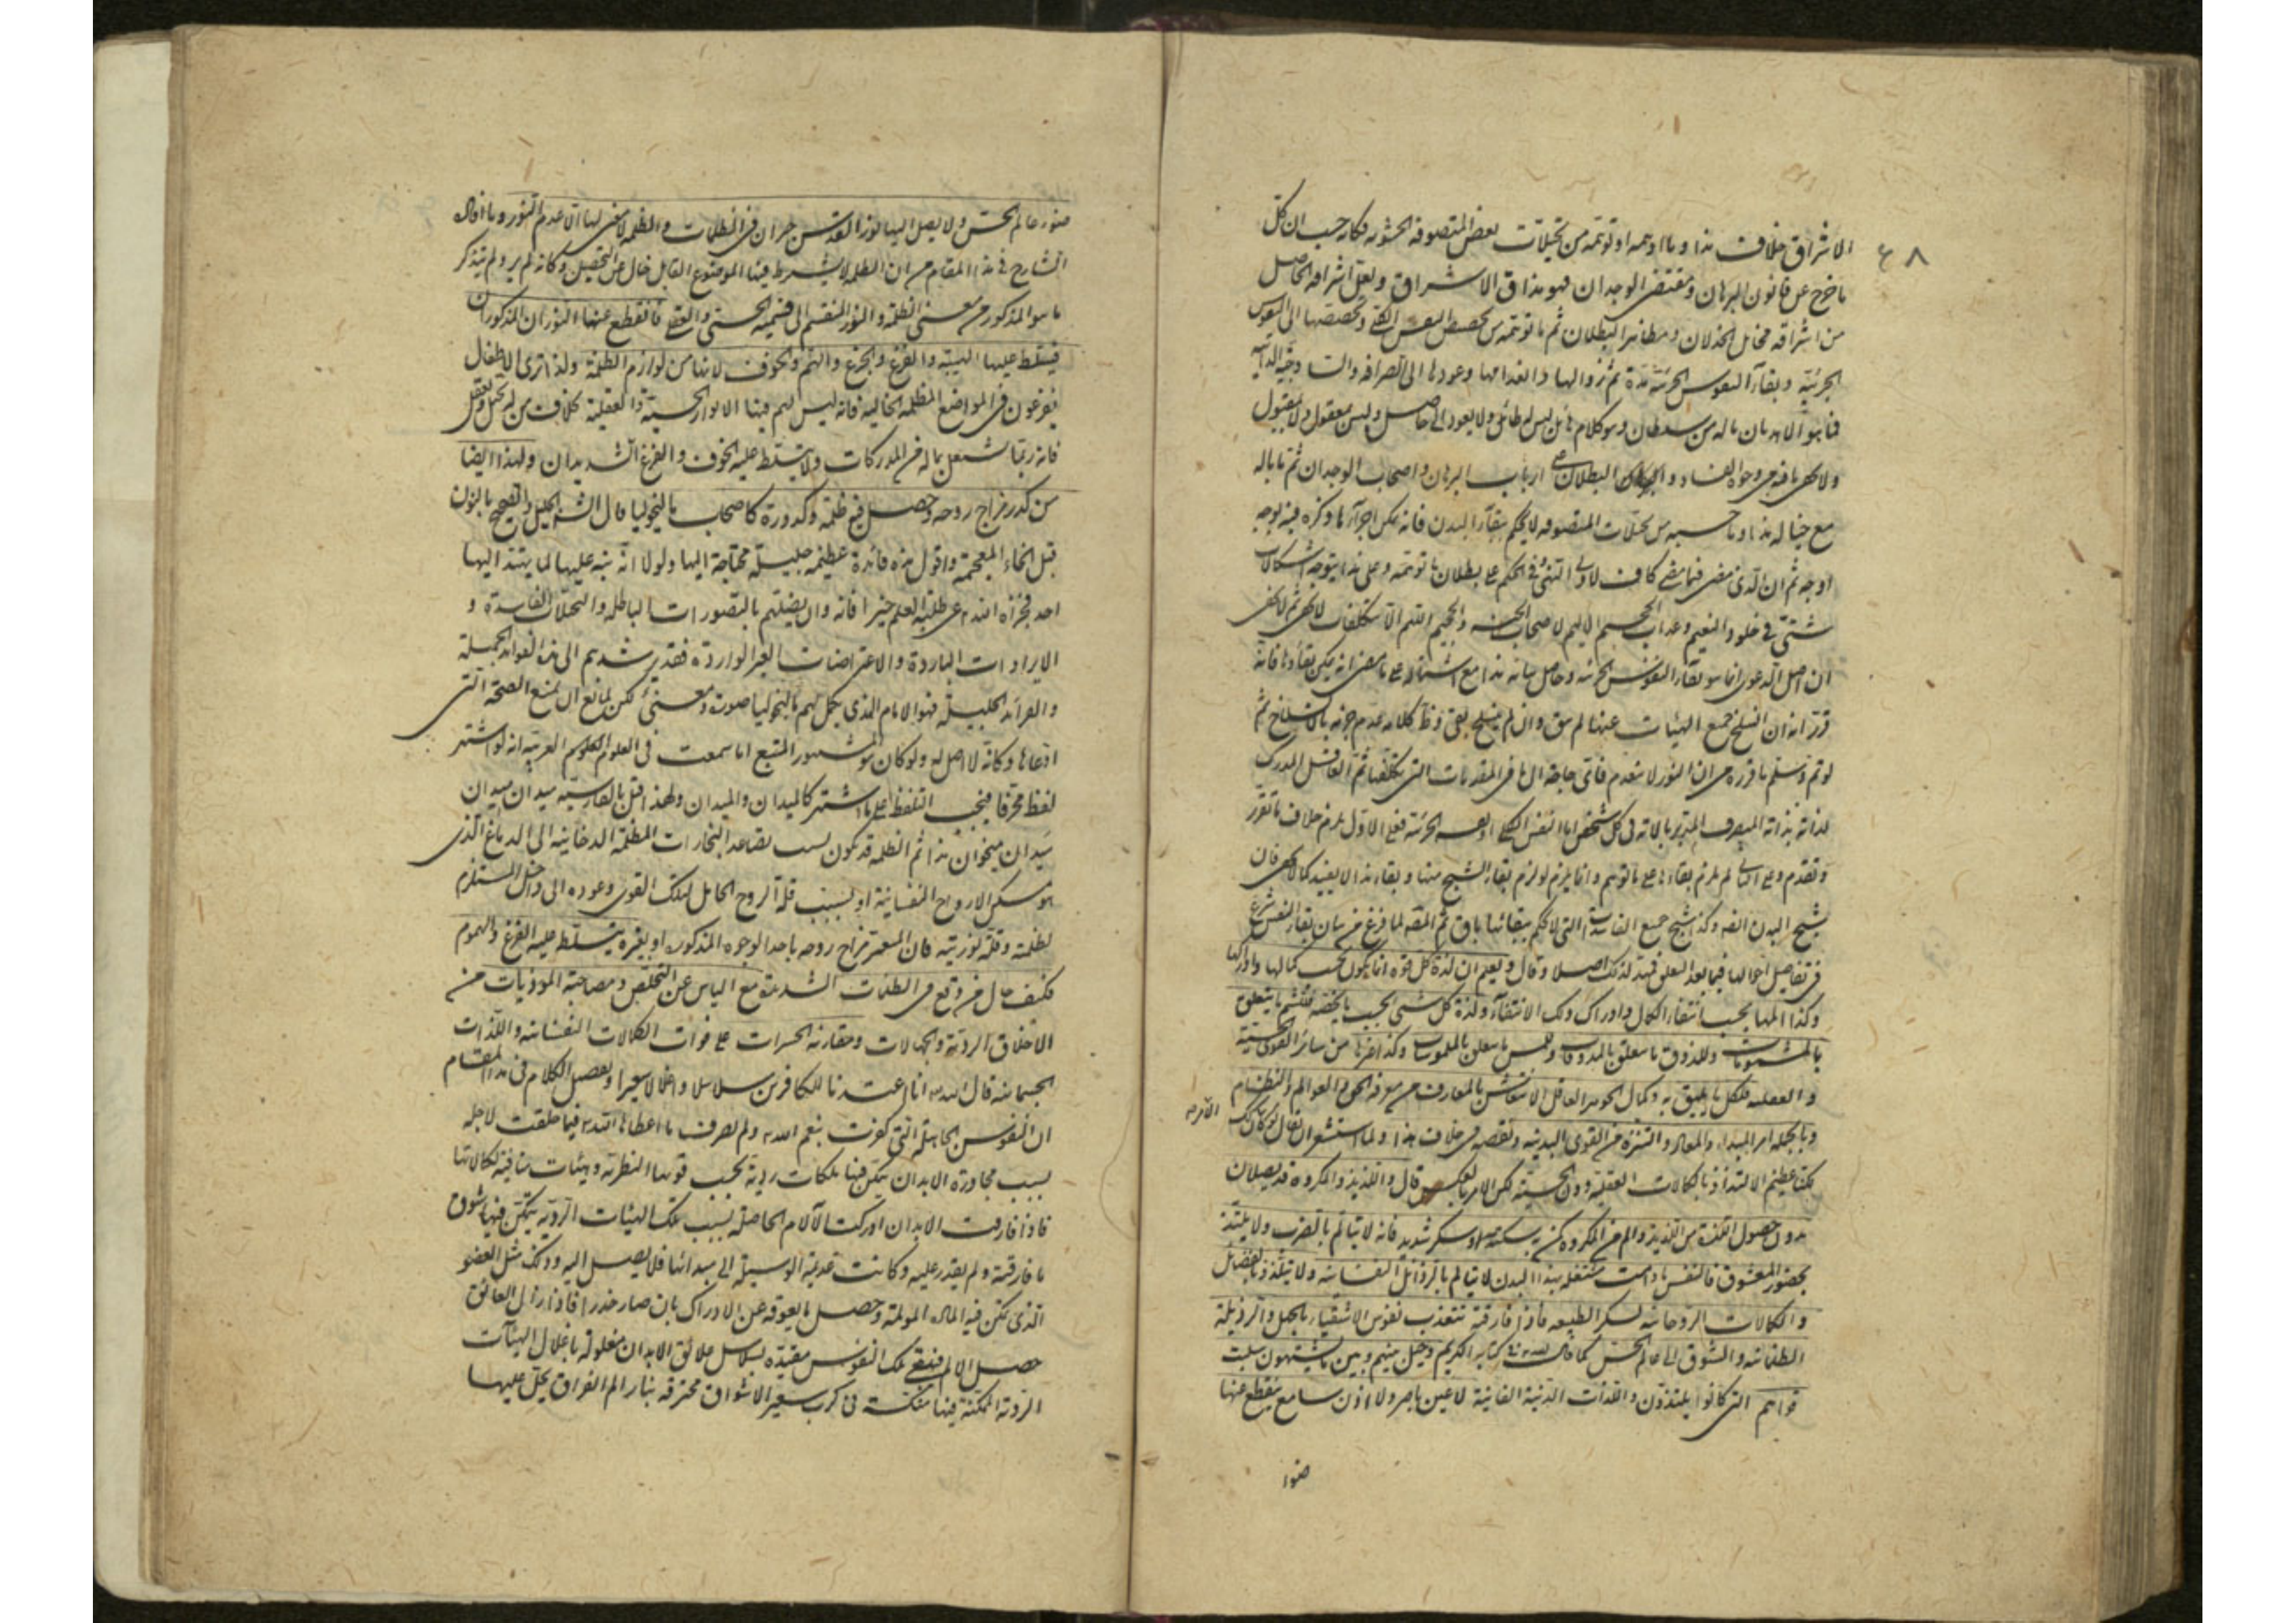 ٤٨
الاشراق خلاف هذا وما اوهمه او توهمه من تخيلات بعض المتصوفة الحشوية فكانه حسب ان كل
ما خرج عن قانون البرهان ومقتضى الوجدان فهو مذاق الاشراق ولعل اشراقه الحاصل
من اشراقه مخايل الخذلان ومظاهر البطلان ثم ما توهمه من تخصص النفس الكلي وتخصصها الى النفوس
الجزئية وبقاء النفوس الجزئية مدة ثم زوالها وانعدامها وعودها الى الصرافة
فما هو الا هذيان ما له من سلطان وهو كلام هائل ليس له طائل ولا يعود الى حاصل وليس معقول ولا مقبول
ولا يخفى ما فيه من وجوه الفساد البطلان على ارباب البرهان واصحاب الوجدان ثم ما باله
مع خياله هذا وما حسبه من تخيلات المتصوفة لا يحكم ببقاء البدن فانه يمكن اجراء ما ذكره فيه بوجه
اوجه ثم ان الذي مضى فيما مضى كاف لاولى النهى في الحكم على بطلان ما توهمه وعلى هذا يتوجه اشكالات
شتى في خلود النعيم وعذاب الجحيم الاليم لاصحاب الجنة والجحيم اللهم الا بتكلفات لا يخفى ثم لا يخفى
ان اصل الدعوى انما هو بقاء النفوس الجزئية وحاصل بيانه هذا مع اشتماله على ما مضى انه يمكن بقاؤها فانه
قرر انه ان انسلخ جميع الهيئات عنها لم يبق وان لم ينسلخ بقى كلامه عدم جزمه بالانسلاخ ثم
لو تم وسلم ما قرره من ان النور لا ينعدم فاى حاجة الى هذه المقدمات التي تكلفها ثم العاقل المدرك
لذاته بذاته المتصرف المدبر بالاته في كل شخص اما النفس الكلي او الجزئية فعلى الاول يلزم خلاف ما تقرر
وتقدم وعلى الثاني لم يلزم بقاءها على ما توهم وانما يلزم لو لزم بقاء الشبح منها وبقاء هذا لا يفيد كما لا يخفى فان
شبح البدن ايضا وكذا شبح جميع الفاسدات التي لا يحكم ببقائها باق ثم المص لما فرغ من بيان بقاء النفس شرع
في تفاصيل احوالها فيما بعد التعلق فمهد لذلك اصلا وقال وليعلم ان لذة كل قوة انما يكون بحسب كمالها وادراكها
وكذا المها بحسب انتفاء الكمال وادراك ذلك الانتفاء ولذة كل شيء بحسب ما يخصه فللشم ما يتعلق
بالمشمومات وللذوق ما يتعلق بالمذوقات وللمس ما يتعلق بالملموسات وكذا غيرها من سائر القوى الحسية
والعقلية فلكل ما يليق به وكمال الجوهر العاقل الانتقاش بالمعارف من معرفة الحق والعوالم والنظام
وبالجملة امر المبداء والمعاد والتنزه من القوى البدنية ونقصه في خلاف هذا ولما استشعر ان يقال لو كان ذلك
لكنا عظيم الالتذاذ بالكمالات العقلية دون الحسية لكن الامر بالعكس قال واللذيذ والمكروه قد يصلان
بدون حصول اللذة من اللذيذ والالم من المكروه كمن به سكتة او سكر شديد فانه لا يتالم بالضرب ولا يلتذ
بحضور المعشوق فالنفس ما دامت مشتغلة بهذا البدن لا يتالم بالرذائل النفسانية ولا يتلذذ بالفضائل
والكمالات الروحانية لسكر الطبيعة فاذا فارقته تتعذب نفوس الاشقياء بالجهل والرذيلة
الظلمانية والشوق الى عالم الحس كما قال الله تع في كتابه الكريم وحيل بينهم وبين ما يشتهون سلبت
قواهم التي كانوا يلتذون واللذات الدنية الفانية لا عين باصر ولا اذن سامع ينقطع عنها
ضوء
ضوء عالم الحس ولا يصل اليها نور القدس حيران في الظلمات والظلمة لا معنى لها الا عدم النور وما افاد
الشارح في هذا المقام من ان الظلمة لا يشترط فيها الموضوع القابل خال عن التحصيل وكانه لم ير ولم يتذكر
ما هو المذكور من معنى الظلمة والنور المنقسم الى قسميه الحسي والعقلي فانقطع عنها النوران المذكوران
فيتسلط عليها الهيبة والفزع والجزع والهم والخوف لانها من لوازم الظلمة ولذا ترى الاطفال
يفزعون في المواضع المظلمة الخالية فانه ليس لهم فيها الانوار الحسية والعقلية بخلاف من له تخيل وتعقل
فانه ربما اشتغل بما له من المدركات ولا يتسلط عليه الخوف والفزع الشديدان ولهذا ايضا
من كدر مزاج روحه وحصل فيه ظلمة وكدورة كاصحاب مالنخوليا قال الشارح الجليل والصحيح بالنون
قبل الخاء المعجمة واقول هذه فائدة عظيمة جليلة محتاجة اليها ولولا انه نبه عليها لما يهتد اليها
احد فجزاه الله عن طلبة العلم خيرا فانه وان يضلهم بالتصورات الباطلة والتخيلات الفاسدة و
الايرادات الباردة والاعتراضات الغير الواردة فقد يرشدهم الى هذه الفوائد الجميلة
والفرائد الجليلة فهو الامام الذي يكمل لهم مالنخوليا صورة ومعنى لكن لمانع ان يمنع الصحة التي
ادعاها وكانه لا اصل له ولو كان هو المشهور المتبع اما سمعت في العلوم العربية انه لو اشتهر
لفظ محرفا فيجب التلفظ على ما اشتهر كالميدان والميدان ولهذا قيل بالفارسية ميدان ميدان
ميدان ميخوان هذا ثم الظلمة قد يكون بسبب تصاعد البخارات المظلمة الدخانية الى الدماغ الذي
هو مسكن الارواح النفسانية او بسبب قلة الروح الحامل لتلك القوى وعوده الى داخل المستلزم
لظلمته وقلة نوريته فان المتغير مزاج روحه باحد الوجوه المذكورة او بغيره يتسلط عليه الفزع والهموم
فكيف حال من وقع في الظلمات الشديدة مع الياس عن التخلص ومصاحبة الموذيات من
الاخلاق الردية والجهالات ومقارنة الحسرات على فوات الكمالات النفسانية واللذات
الجسمانية قال الله تع انا اعتدنا للكافرين سلاسلا واغلالا وسعيرا وتفصيل الكلام في هذا المقام
ان النفوس الجاهلة التي كفرت بنعم الله ولم تصرف ما اعطاها الله فيما خلقت لاجله
بسبب مجاورة الابدان تمكن فيها ملكات ردية بحسب قوتها النظرية وهيئات منافية لكمالاتها
فاذا فارقت الابدان ادركت الآلام الحاصلة بسبب تلك الهيئات الردية يتمكن فيها شوق
ما فارقته ولم يقدر عليه وكانت عديمة الوسيلة الى مبدائها فلا يصل اليه وذلك مثل العضو
الذي تمكن فيه المادة المولمة وحصل ما يعوقه عن الادراك بان صار خدرا فاذا زال العائق
حصل الالم فتبقى تلك النفوس مقيدة بسلاسل علائق الابدان مغلولة باغلال الهيئات
الردية المتمكنة فيها منتكسة في كرب سعير الاشواق محترقة بنار الم الفراق يحل عليها